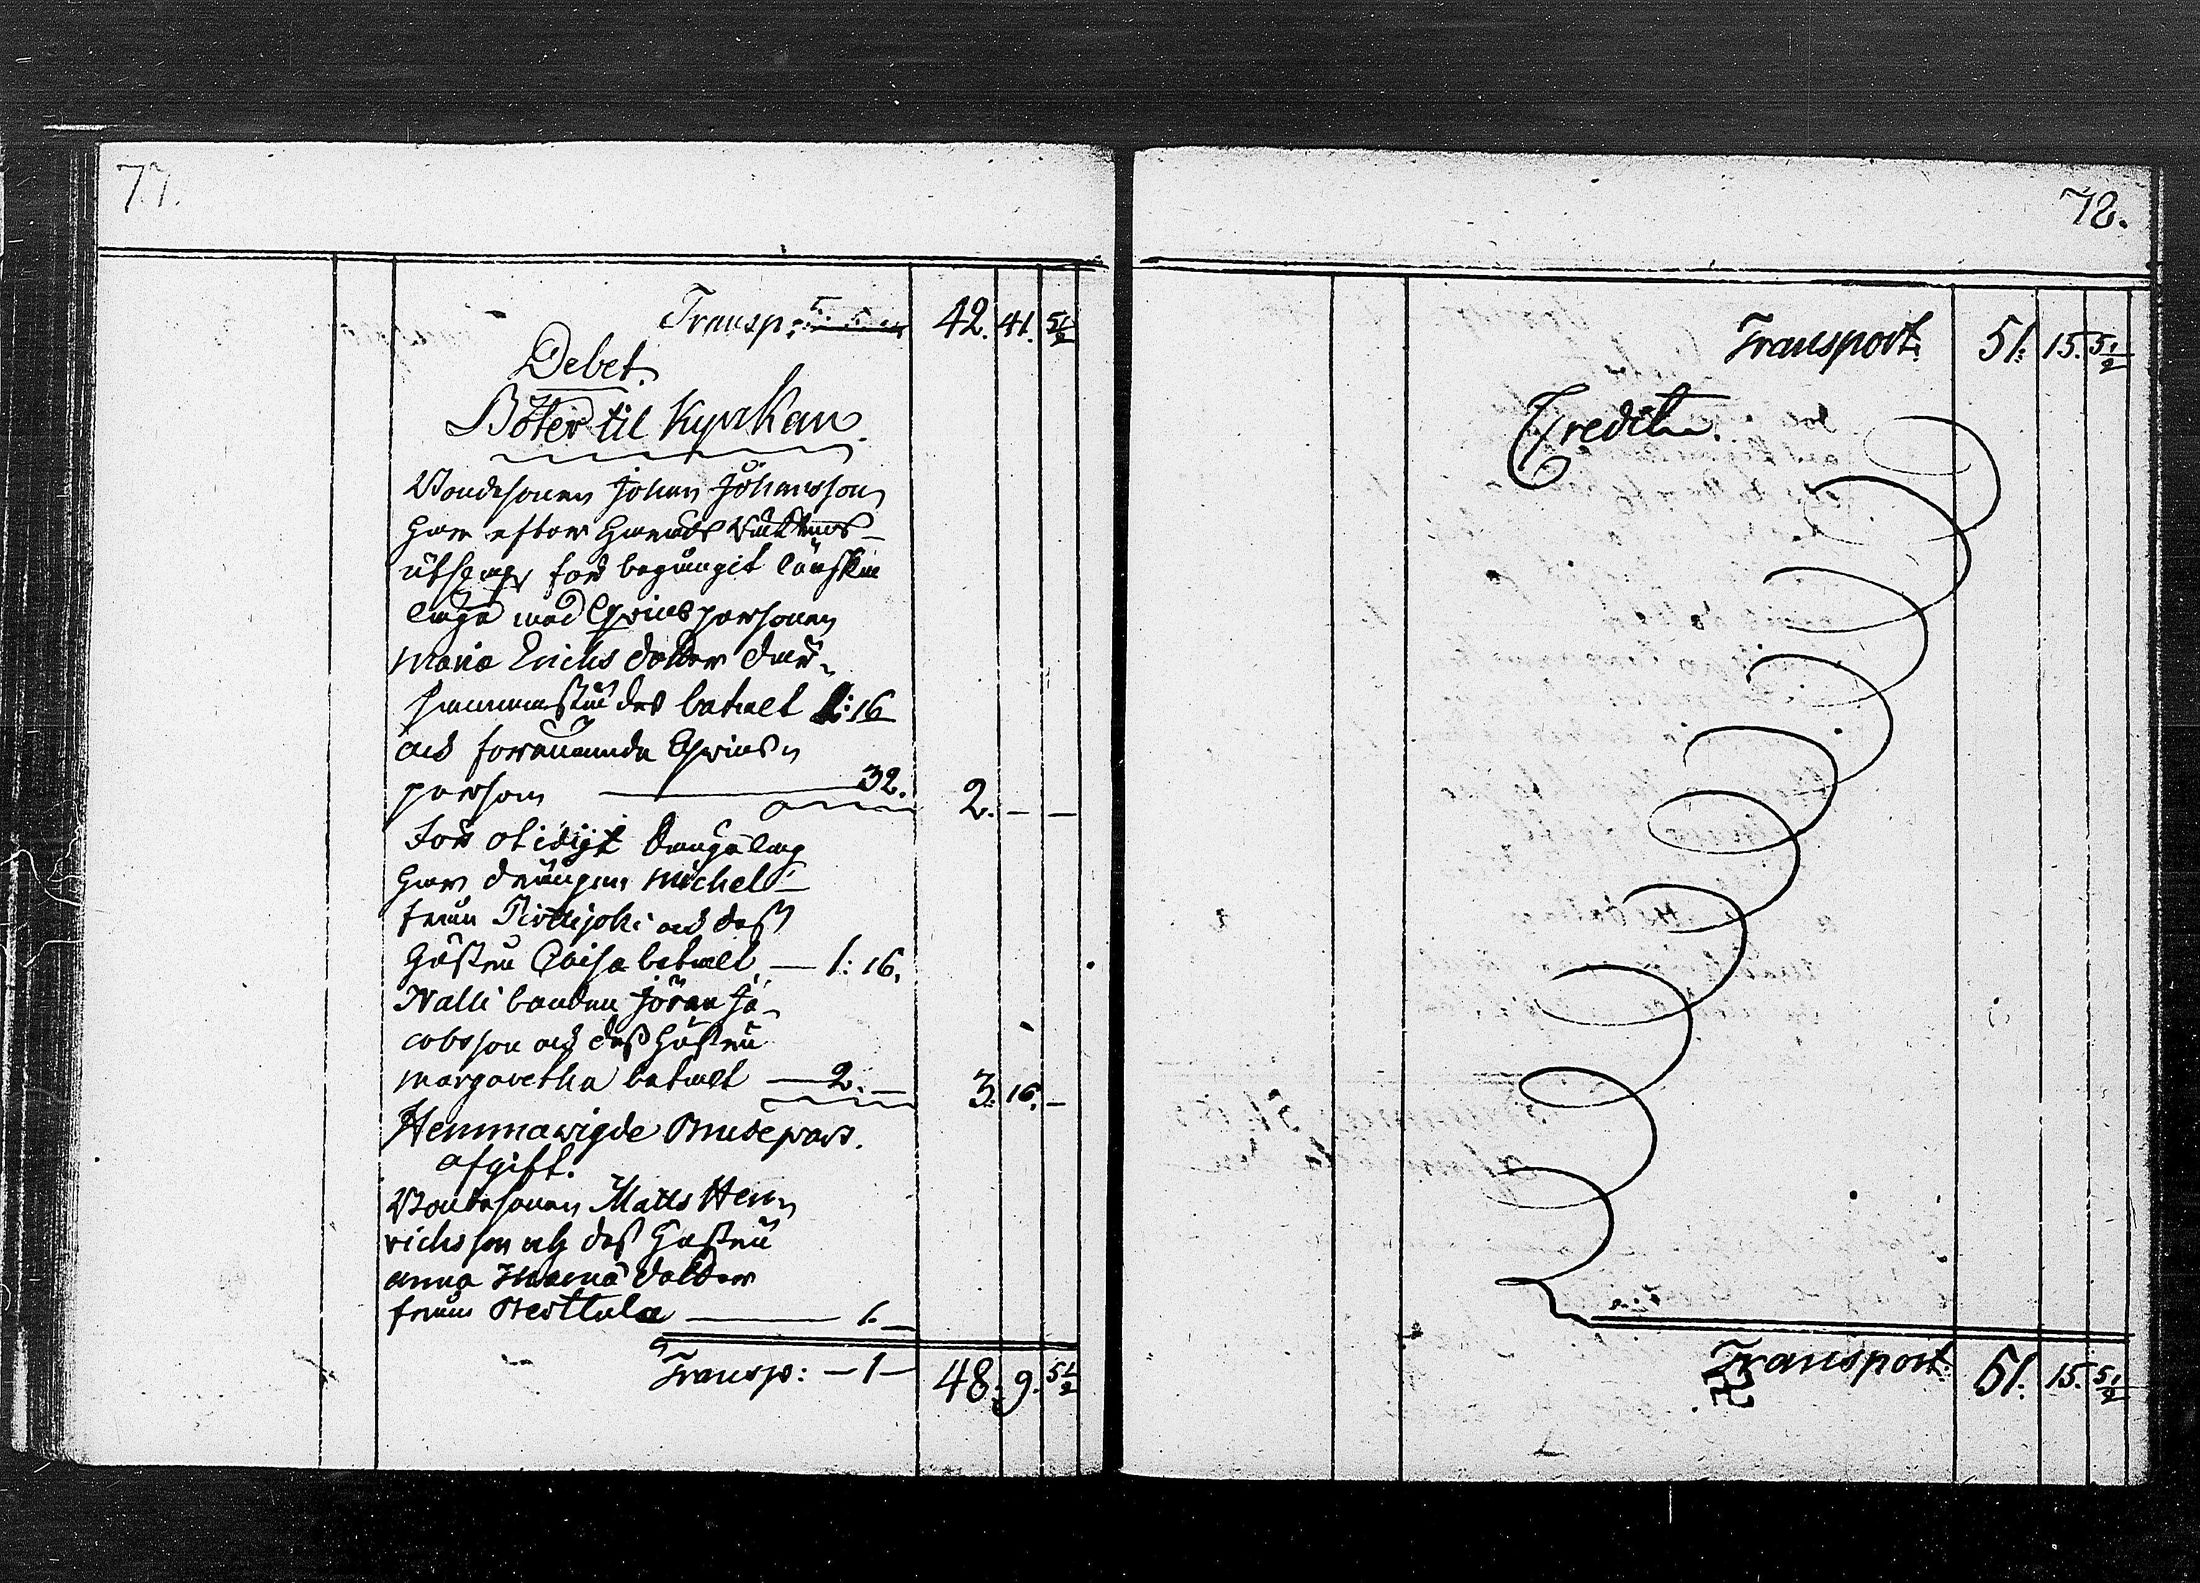 77.
Transp: 42. 41. 5 1/2
Debet.
Böter til Kyrkan.
Bondesonen Johan Johansson
har efter Härads Rättens
utslag för begångit lönska
läge med Qvinspersonen
Maria Erichs dotter
betalt 1:16
och förenämnde Qvins
person 32. 2. - -
För otidigt sängelag
har drängen Michel
från och dess
hustru Caisa betalt — 1: 16.
Nalli bonden Jöran Ja-
cobsson och dess hustru
Margaretha betalt — 2. — 3. 16. -
Hemmavigde Brudepars
afgift.
Bondesonen Matts Hen-
richsson och dess hustru
Anna dotter
från Perttula — 1. —
Transp: — 1 — 48. 9. 5 1/2
78.
Transport. 51. 15. 5 1/2
Credit.
Transport. 51. 15. 5 1/2